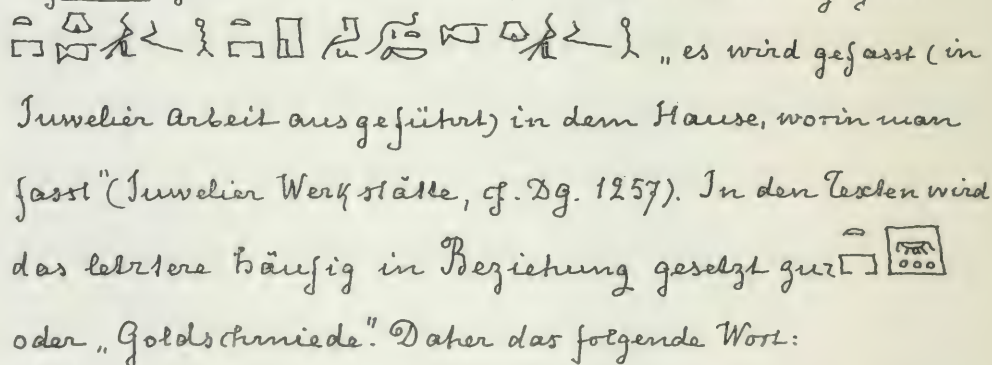 „es wird gefasst (in
Juwelier Arbeit ausgeführt) in dem Hause, worin man
fasst" (Juwelier Werkstätte, cf. Dg. 1257). In den Texten wird
das letztere häufig in Beziehung gesetzt zur
oder „Goldschmiede". Daher das folgende Wort: